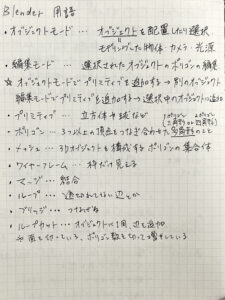 Blender 用語
・オブジェクトモード … オブジェクトを配置したり選択
モデリングした物体 カメラ・光源
・編集モード … 選択されたオブジェクトのポリゴンの編集
☆オブジェクトモードでプリミティブを追加する → 別のオブジェクト
編集モードでプリミティブを追加する → 選択中のオブジェクトに追加
・プリミティブ … 立方体や球など
・ポリゴン … 3つ以上の頂点をつなぎ合わせた多角形のこと
・メッシュ … 3Dオブジェクトを構成するポリゴンの集合体
・ワイヤーフレーム … 枠だけ見える
・マージ … 結合
・ループ … 途切れてない辺とか
・ブリッジ … つなげる
・ループカット … オブジェクトに1周、辺を追加
面を切っている、ポリゴン数を切って増やしている